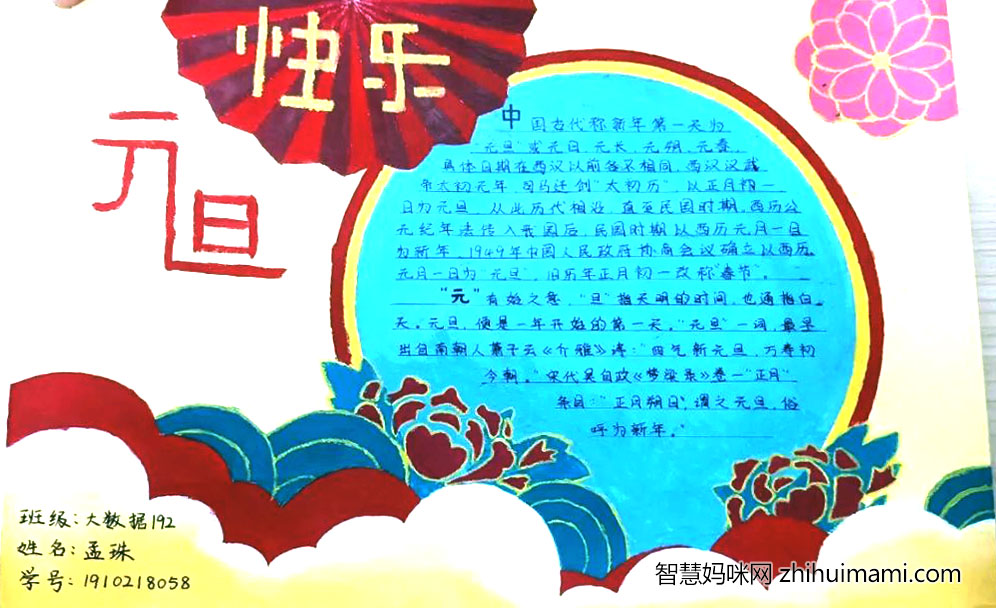 快乐
元旦
中国古代称新年第一天为
"元旦"或元日、元长、元朔、元春,
具体日期在西汉以前各不相同,西汉汉武
帝太初元年,司马迁创"太初历",以正月初一
日为元旦,从此历代相沿,直至民国时期。西历公
元纪年法传入我国后,民国时期以西历元月一日
为新年,1949年中国人民政府协商会议确立以西历
元月一日为"元旦",旧乐年正月初一改称"春节"。
"元"有始之意,"旦"指天明的时间,也通指白
天。元旦,便是一年开始的第一天。"元旦"一词,最早
出自南朝人萧子云《介雅》诗:"四气新元旦,万寿初
今朝。"宋代吴自政《梦梁录》卷一"正月"
条目:"正月朔日,谓之元旦,俗
呼为新年。"
班级:大数据192
姓名:孟珠
学号:1910218058
智慧妈咪网 zhihuimami.com